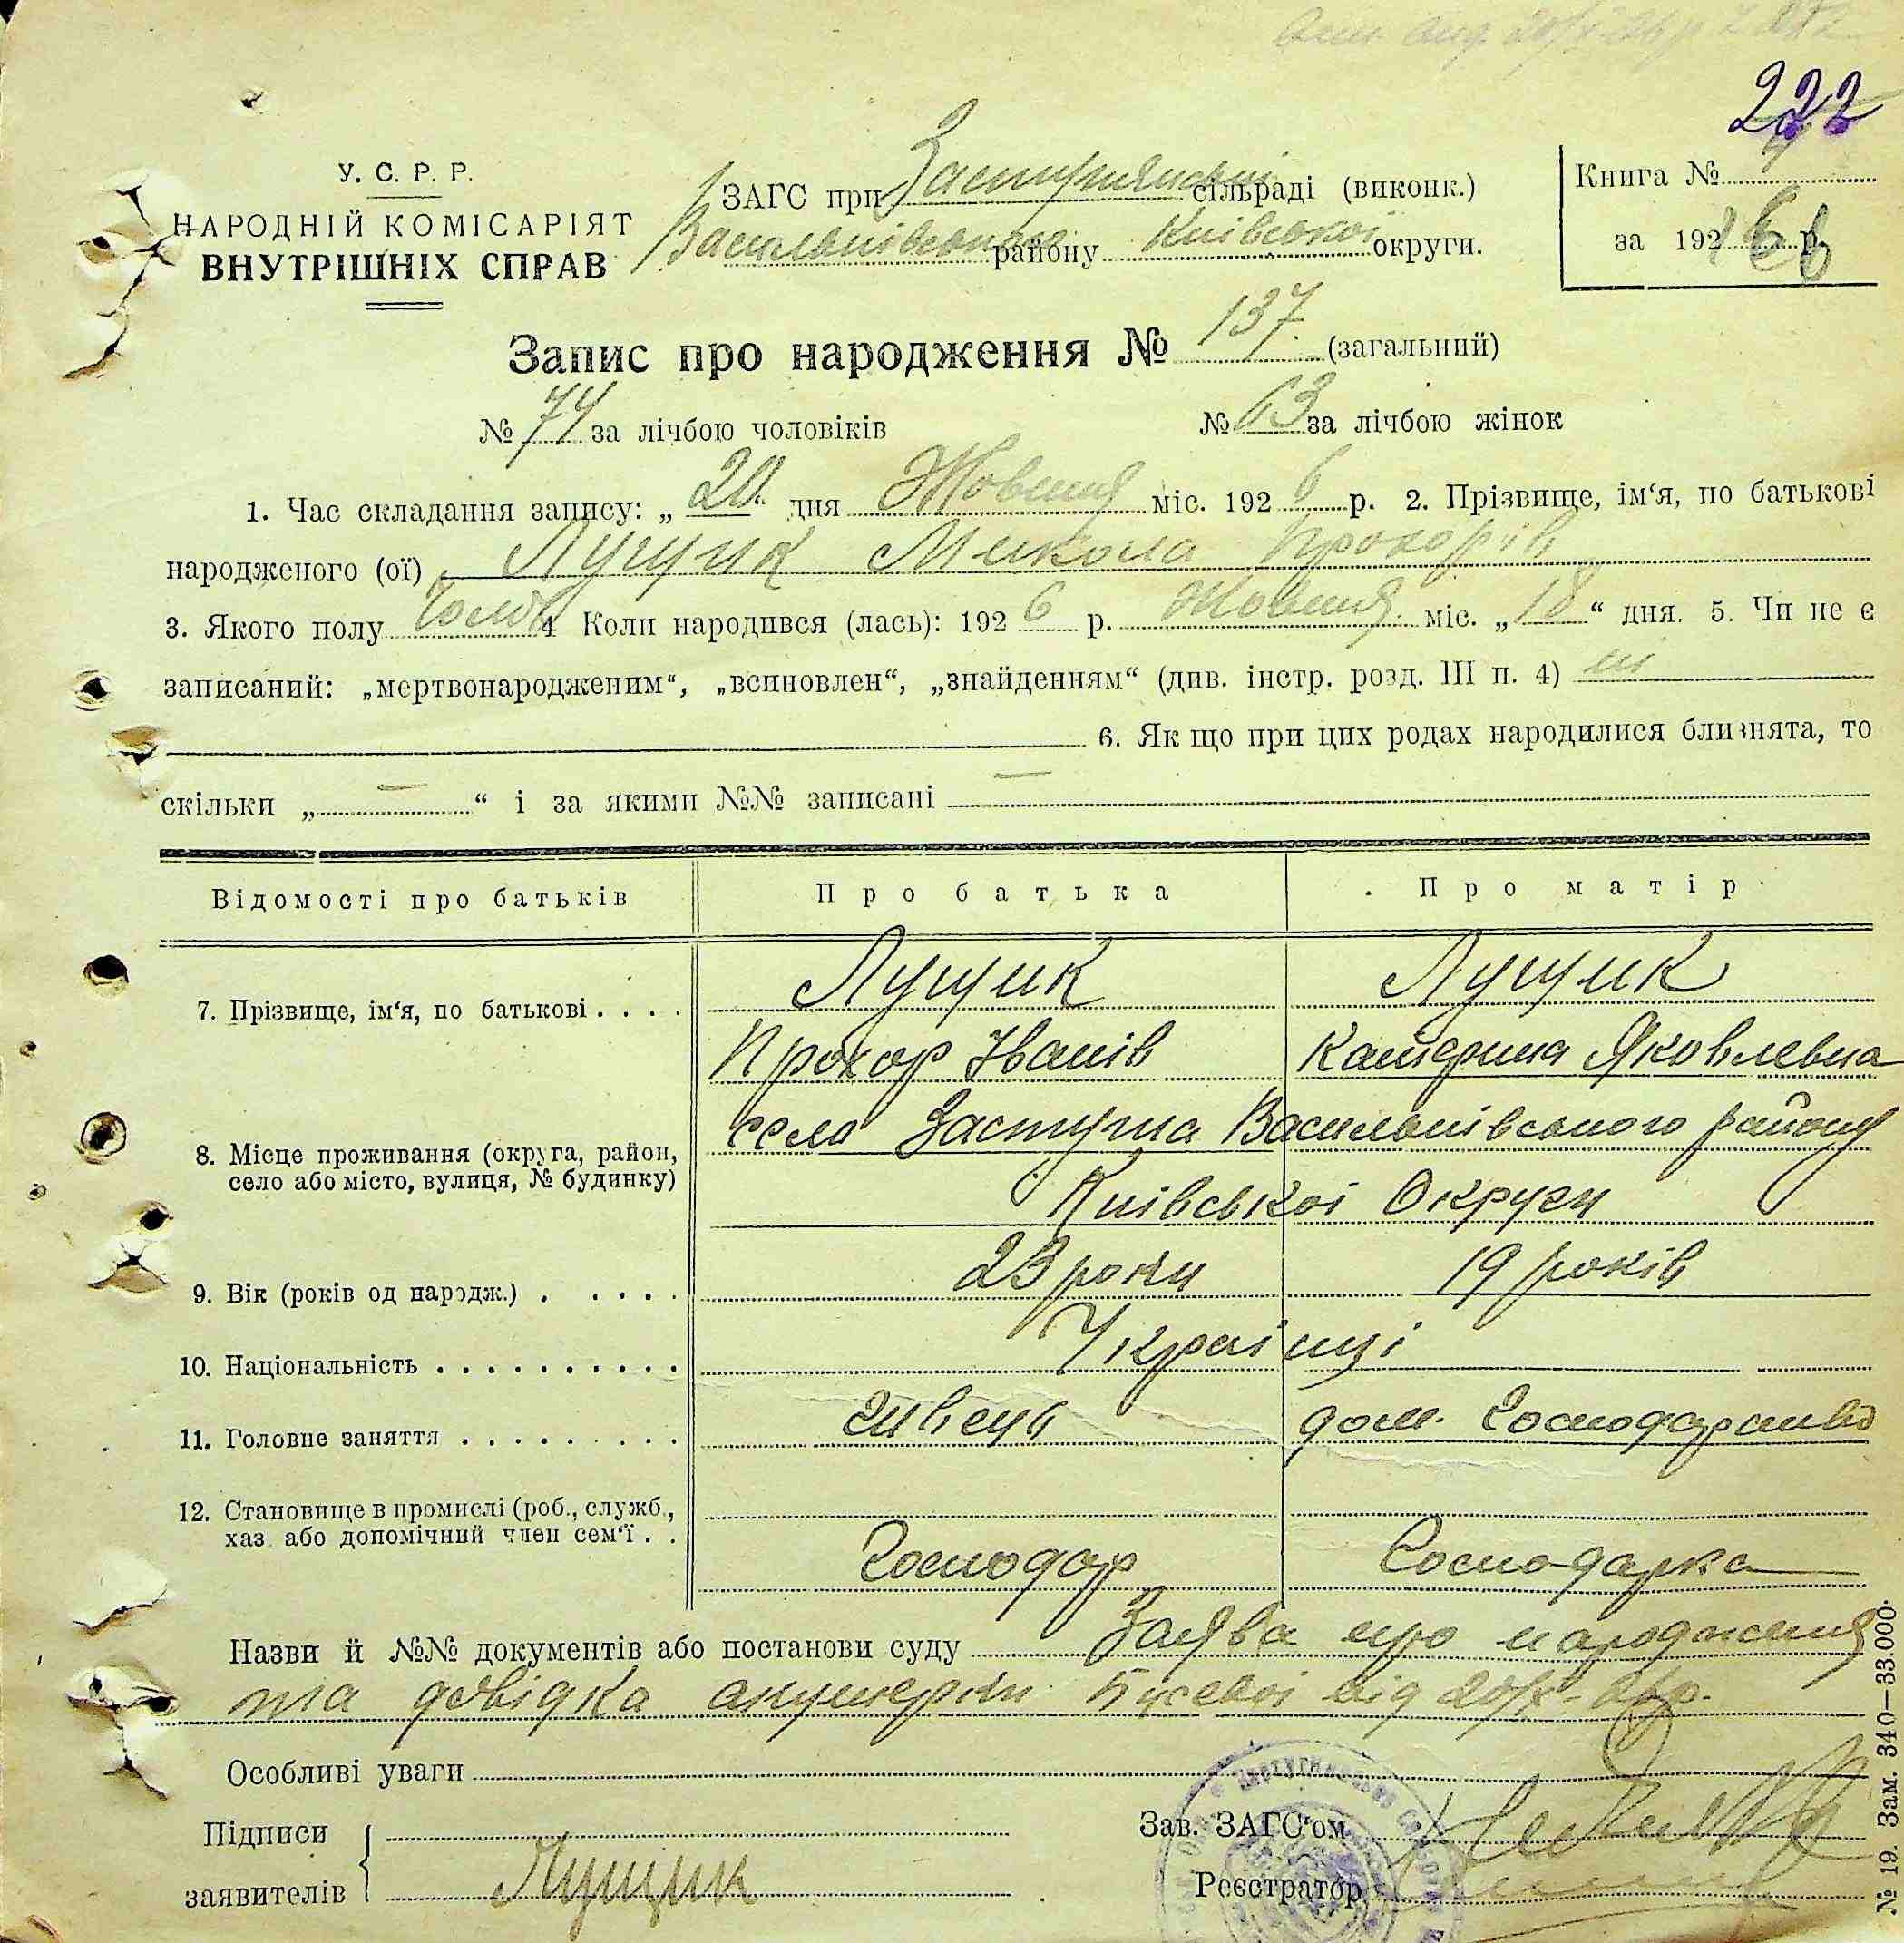 222
У. С. Р. Р.
НАРОДНІЙ КОМІСАРІЯТ
ВНУТРІШНІХ СПРАВ
ЗАГС при Застугнянській сільраді (виконк.)
Васильківського району Київської округи.
Книга №
за 1926 р.
Запис про народження № 137 (загальний)
№ 74 за лічбою чоловіків № 63 за лічбою жінок
1. Час складання запису: „20“ дня Жовтня міс. 1926 р. 2. Прізвище, ім‘я, по батькові
народженого (ої) Лущик Микола Прохорів
3. Якого полу Чолов 4 Коли народився (лась): 1926 р. Жовтня міс. „18“ дня. 5. Чи не є
записаний: „мертвонародженим“, „всиновлен“, „знайденням“ (див. інстр. розд. III п. 4) ні
6. Як що при цих родах народилися близнята, то
скільки „ — “ і за якими №№ записані —
Відомості про батьків Про батька Про матір
7. Прізвище, ім‘я, по батькові . . . . Лущик Лущик
Прохор Іванів Катерина Яковлевна
8. Місце проживання (округа, район, село або місто, вулиця, № будинку) село Застугна Васильківського району
Київської Округи
9. Вік (років од народж.) . . . . . 23 роки 19 років
10. Національність . . . . . . . . . . Українці
11. Головне заняття . . . . . . . . . швець дом. господарство
12. Становище в промислі (роб., служб.,
хаз. або допомічний член сем‘ї . . Господар Господарка
Назви й №№ документів або постанови суду Заява про народження
та довідка акушерки від 20/X-26р.
Особливі уваги
Підписи
заявителів Лущик
Зав. ЗАГС‘ом
Реєстратор
№ 19. Зам. 340—33.000.